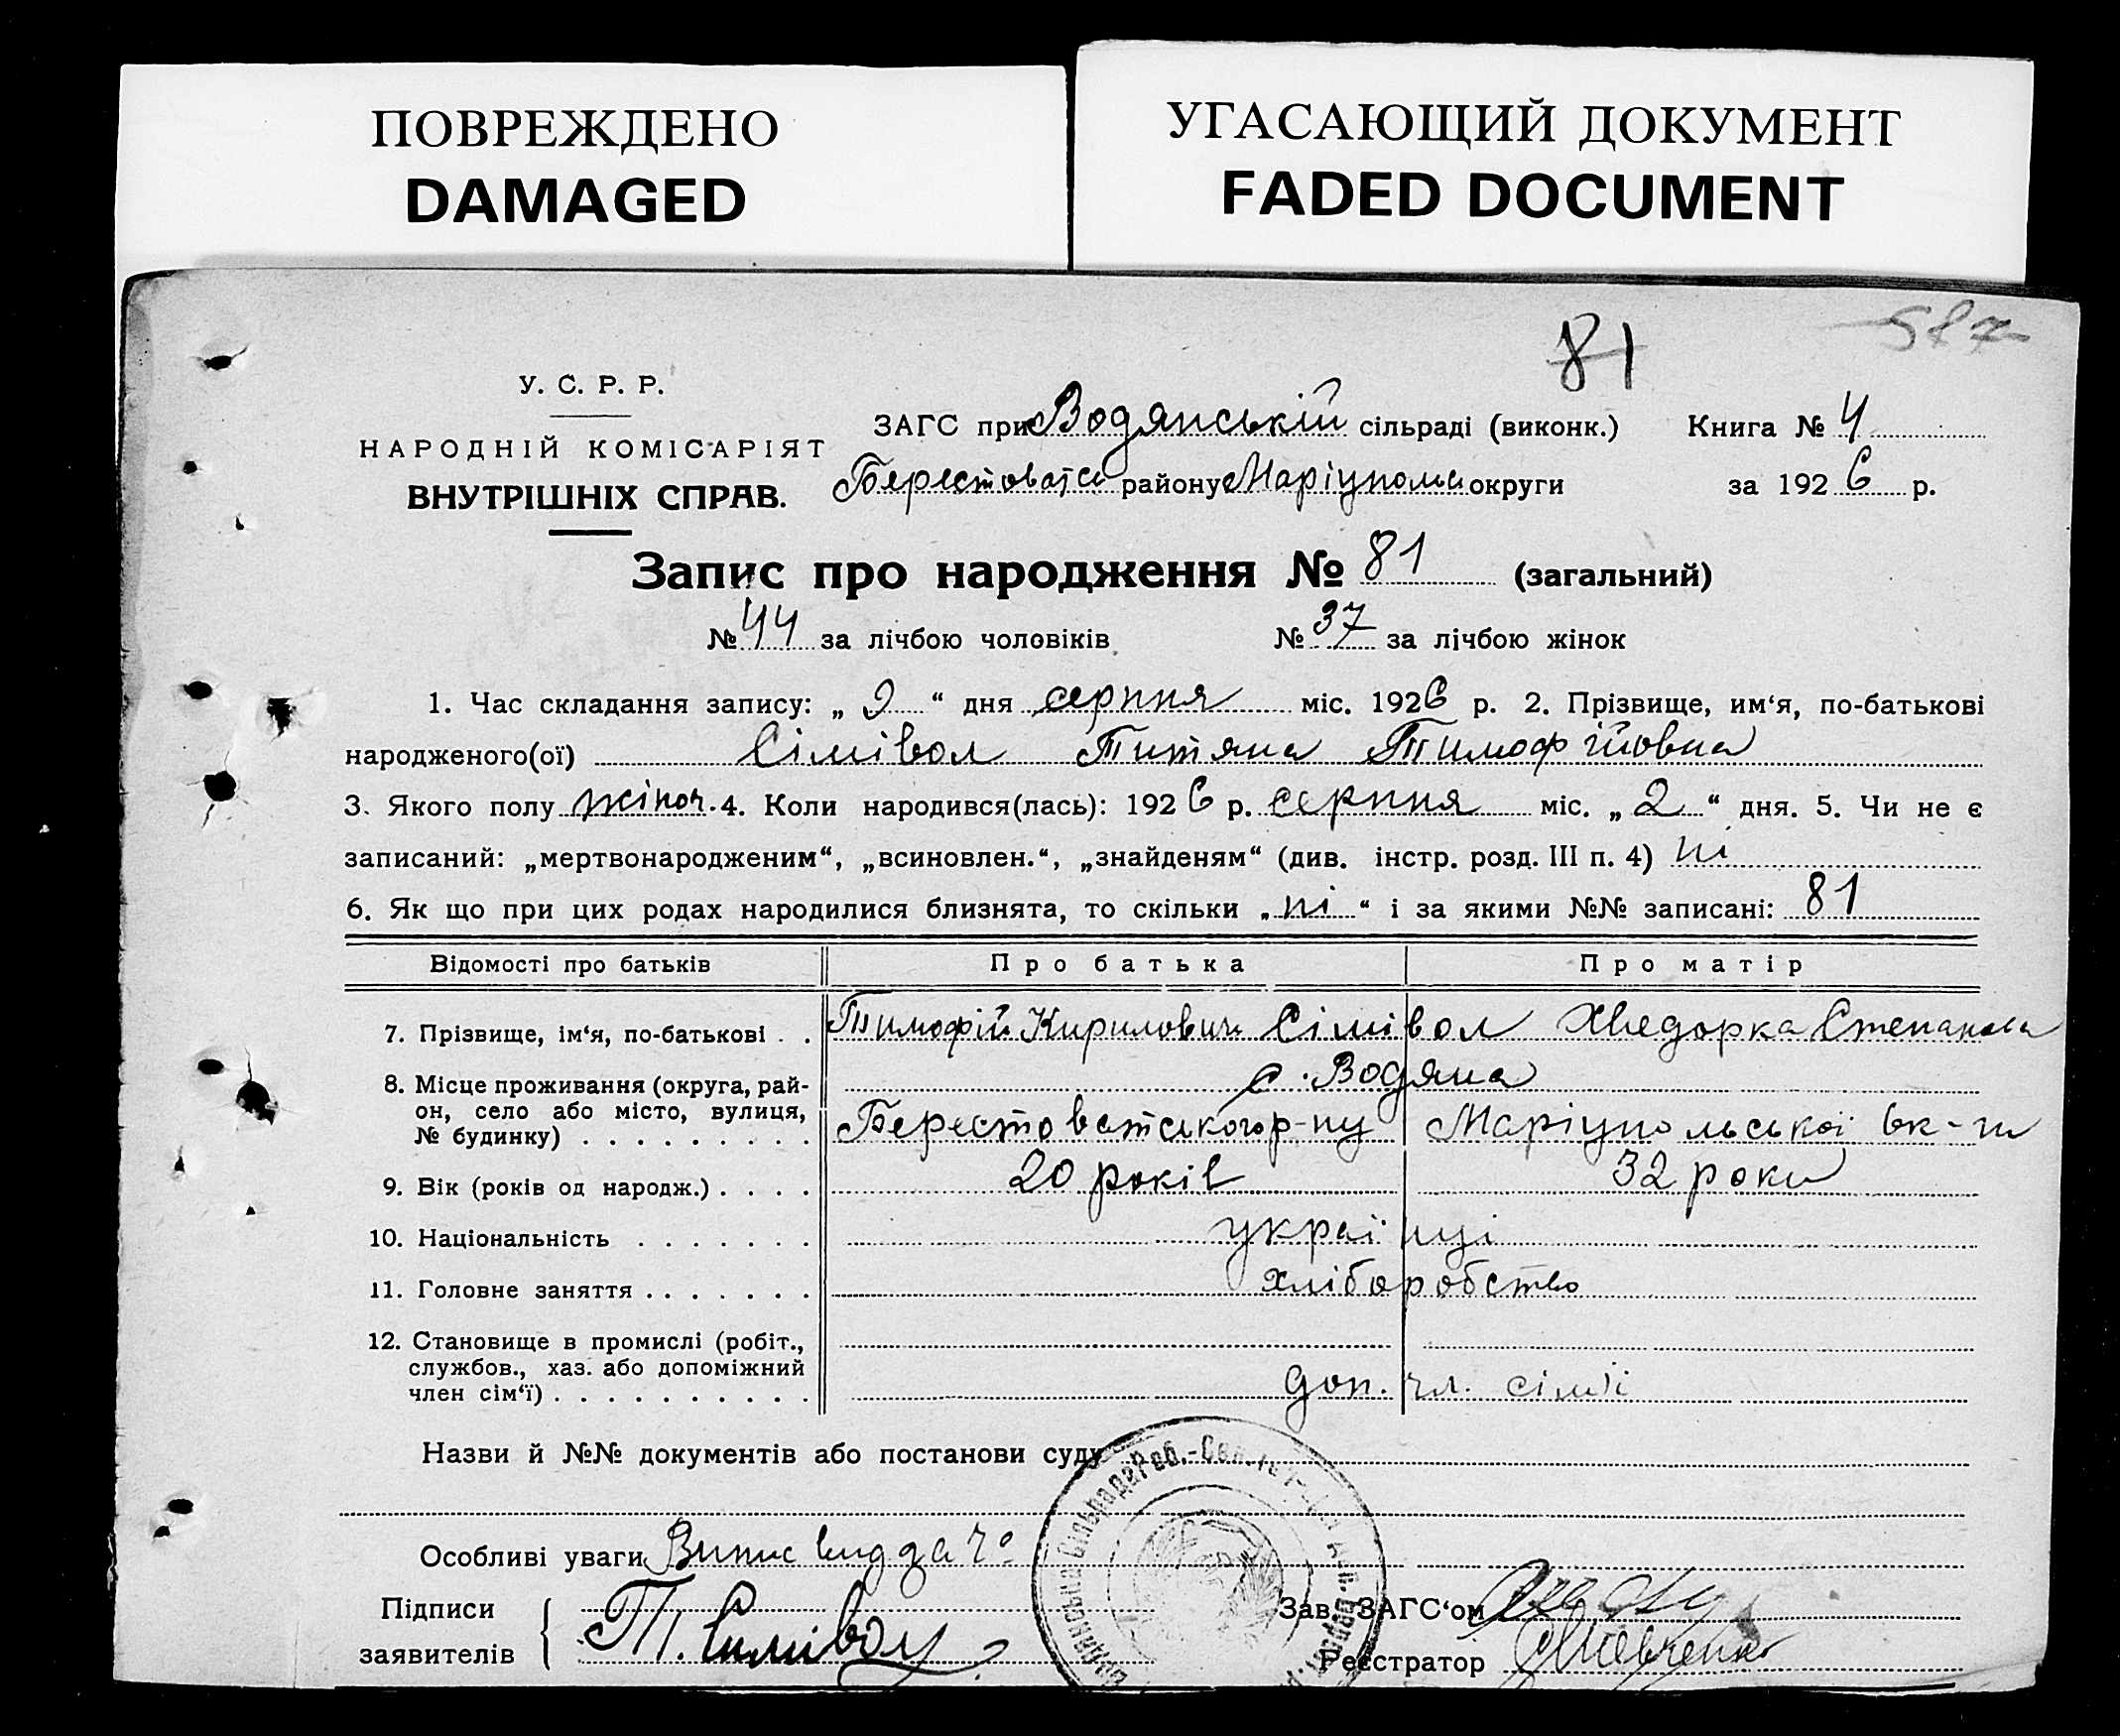 ПОВРЕЖДЕНО
DAMAGED
УГАСАЮЩИЙ ДОКУМЕНТ
FADED DOCUMENT
81
587
У. С. Р. Р.
НАРОДНІЙ КОМІСАРІЯТ
ВНУТРІШНІХ СПРАВ.
ЗАГС при Водянській сільраді (виконк.) Книга № 4
Берестоватсь району Маріупольсь округи за 1926 р.
Запис про народження № 81 (загальний)
№ 44 за лічбою чоловіків № 37 за лічбою жінок
1. Час складання запису: „ 9 “ дня серпня міс. 1926 р. 2. Прізвище, им‘я, по-батькові
народженого(ої) Сімівол Титяна Тимофійовна
3. Якого полу жіноч. 4. Коли народився(лась): 1926 р. серпня міс. „ 2 “ дня. 5. Чи не є
записаний: „мертвонародженим“, „всиновлен.“, „знайденям“ (див. інстр. розд. III п. 4) ні
6. Як що при цих родах народилися близнята, то скільки „ ні “ і за якими №№ записані: 81
Відомості про батьків Про батька Про матір
7. Прізвище, ім‘я, по-батькові . . Тимофій Кирилович Сімівол Хведорка Степанова
8. Місце проживання (округа, рай- с. Водяна
он, село або місто, вулиця,
№ будинку) . . . . . . . . . Берестоватського р-ну Маріупольської ок-ги
9. Вік (років од народж.) . . . . 20 років 32 роки
10. Національність . . . . . . . українці
11. Головне заняття . . . . . . . хліборобство
12. Становище в промислі (робіт.,
службов., хаз. або допоміжний
член сім‘ї) . . . . . . . . . . доп. чл. сімї
Назви й №№ документів або постанови суду
Особливі уваги Випис виддачо
Підписи
заявителів Т. Симівол
Зав. ЗАГС‘ом
Реєстратор Шевченко